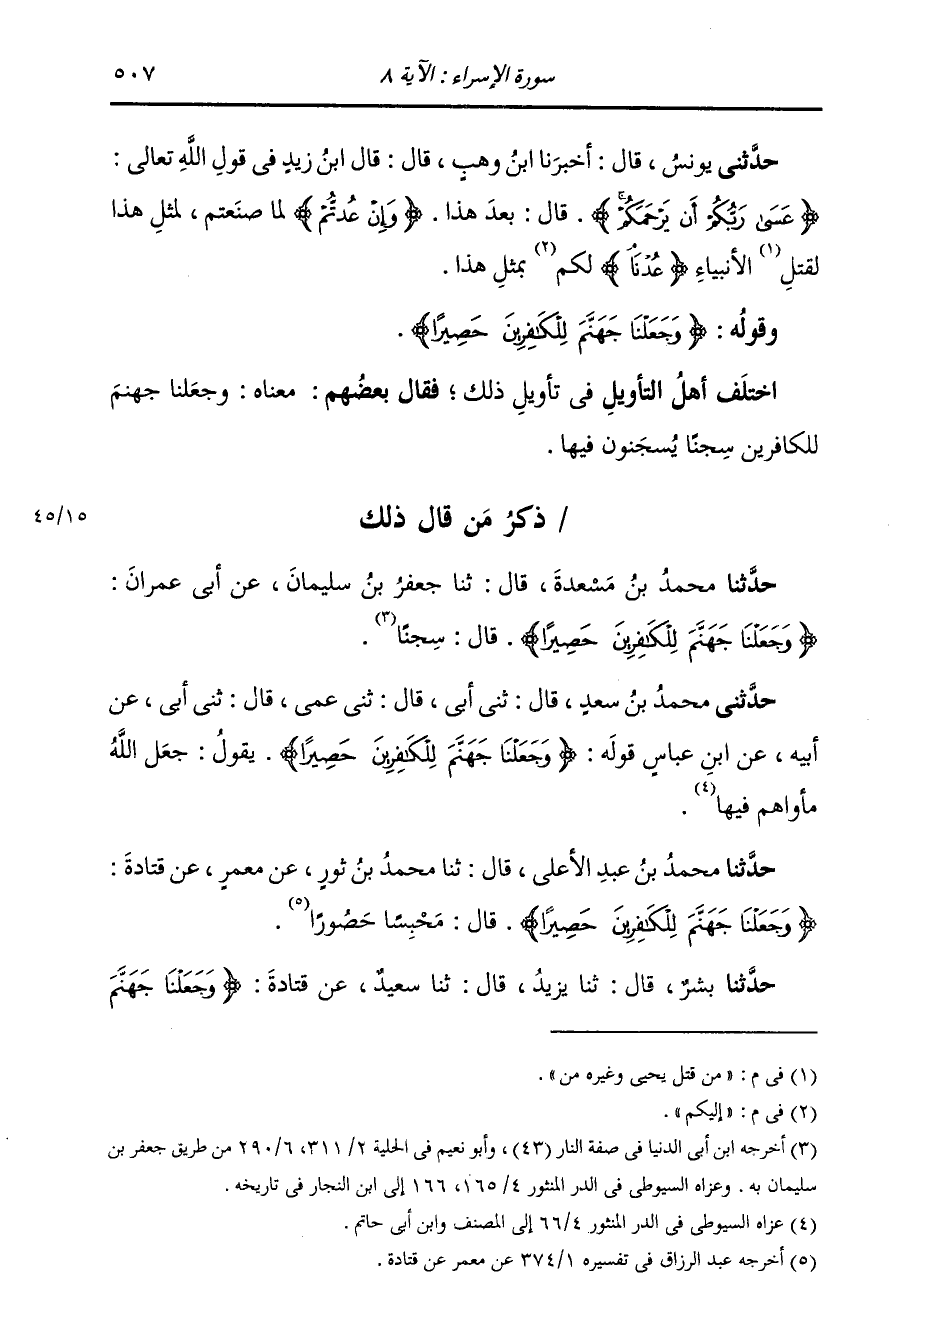 سورة الإسراء : الآية ٨ ٥٠٧
حدَّثنى يونسُ ، قال : أخبرَنا ابنُ وهبٍ ، قال : قال ابنُ زيدٍ فى قولِ اللَّهِ تعالى :
﴿ عَسَىٰ رَبُّكُمْ أَن يَرْحَمَكُمْۚ ﴾ . قال : بعدَ هذا . ﴿ وَإِنْ عُدتُّمْ ﴾ لما صنَعتم ، لمثلِ هذا
لقتلِ(١) الأنبياءِ ﴿ عُدْنَاۘ ﴾ لكم(٢) بمثلِ هذا .
وقولُه : ﴿ وَجَعَلْنَا جَهَنَّمَ لِلْكَٰفِرِينَ حَصِيرًا ﴾ .
اختلَف أهلُ التأويلِ فى تأويلِ ذلك ؛ فقال بعضُهم : معناه : وجعَلنا جهنمَ
للكافرين سِجنًا يُسجَنون فيها .
/ ذكرُ مَن قال ذلك ٤٥/١٥
حدَّثنا محمدُ بنُ مَسْعدةَ ، قال : ثنا جعفرُ بنُ سليمانَ ، عن أبى عمرانَ :
﴿ وَجَعَلْنَا جَهَنَّمَ لِلْكَٰفِرِينَ حَصِيرًا ﴾ . قال : سِجنًا(٣) .
حدَّثنى محمدُ بنُ سعدٍ ، قال : ثنى أبى ، قال : ثنى عمى ، قال : ثنى أبى ، عن
أبيه ، عن ابنِ عباسٍ قولَه : ﴿ وَجَعَلْنَا جَهَنَّمَ لِلْكَٰفِرِينَ حَصِيرًا ﴾ . يقولُ : جعَل اللَّهُ
مأواهم فيها(٤) .
حدَّثنا محمدُ بنُ عبدِ الأعلى ، قال : ثنا محمدُ بنُ ثورٍ ، عن معمرٍ ، عن قتادةَ :
﴿ وَجَعَلْنَا جَهَنَّمَ لِلْكَٰفِرِينَ حَصِيرًا ﴾ . قال : مَحْبِسًا حَصُورًا(٥) .
حدَّثنا بشرٌ ، قال : ثنا يزيدُ ، قال : ثنا سعيدٌ ، عن قتادةَ : ﴿ وَجَعَلْنَا جَهَنَّمَ
(١) فى م : « من قتل يحيى وغيره من » .
(٢) فى م : « إليكم » .
(٣) أخرجه ابن أبى الدنيا فى صفة النار (٤٣) ، وأبو نعيم فى الحلية ٢/ ٣١١، ٢٩٠/٦ من طريق جعفر بن
سليمان به . وعزاه السيوطى فى الدر المنثور ٤/ ١٦٥، ١٦٦ إلى ابن النجار فى تاريخه .
(٤) عزاه السيوطى فى الدر المنثور ٦٦/٤ إلى المصنف وابن أبى حاتم .
(٥) أخرجه عبد الرزاق فى تفسيره ٣٧٤/١ عن معمر عن قتادة .